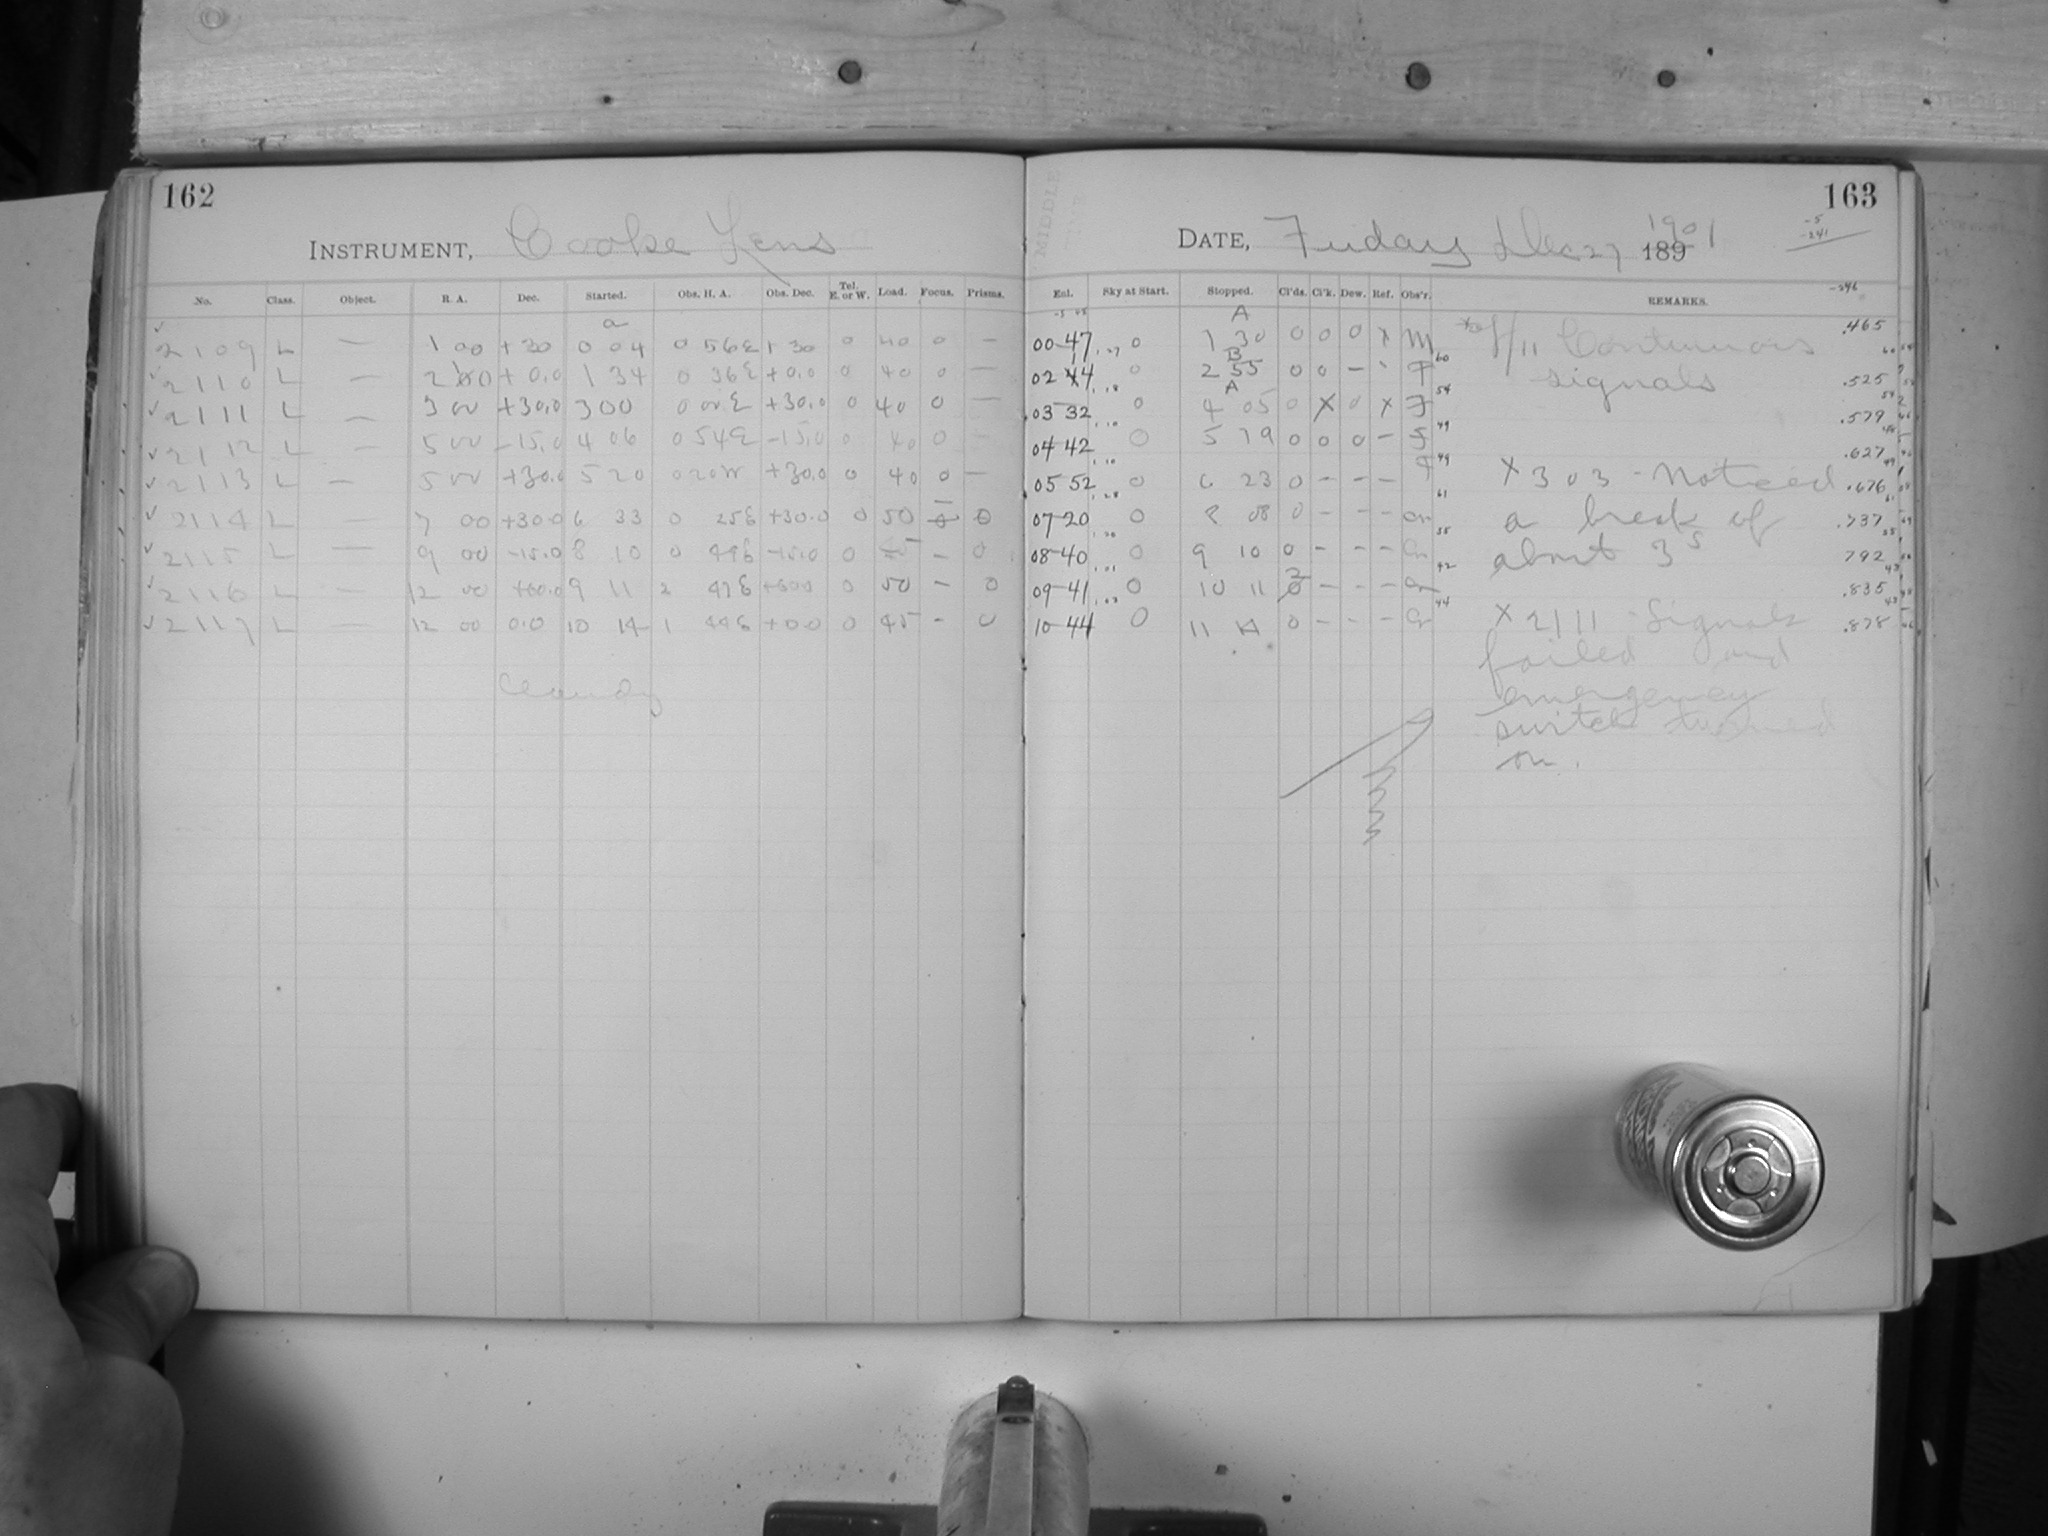 162
163
INSTRUMENT, Cooke Lens
DATE, Friday Dec 27 1901 189
-5
-241
No. Class. Object. R. A. Dec. Started. Obs. H. A. Obs. Dec. Tel. E. or W. Load. Focus. Prisms. Enl. Sky at Start. Stopped. Cl'ds. Cl'k. Dew. Ref. Obs'r. REMARKS.
-246
2109 L — 1 00 +30 0 04 0 56 E + 30 0 40 0 — 00-47 0 A 1 30 0 0 0 x M .465
2110 L — 2 00 + 0.0 1 34 0 36 E +0.0 0 40 0 — 02 44 0 B 2 55 0 0 — F .525
2111 L — 3 00 +30.0 3 00 0 00 E +30.0 0 40 0 — 03 32 0 A 4 05 0 X 0 x F .579
2112 L — 5 00 -15.0 4 06 0 54 E -15.0 0 40 0 — 04 42 0 5 19 0 0 0 — F .627
2113 L — 5 00 +30.0 5 20 0 20 W +30.0 0 40 0 — 05 52 0 6 23 0 - - - F .676
2114 L — 7 00 +30.0 6 33 0 25 E +30.0 0 50 0 07-20 0 8 08 0 - - - .737
2115 L — 9 00 -15.0 8 10 0 49 E -15.0 0 45 — 0 08-40 0 9 10 0 - - - 792
2116 L — 12 00 +60.0 9 11 2 47 E +60.0 0 50 — 0 09-41 0 10 11 - - - .835
2117 L — 12 00 0.0 10 14 1 44 E +0.0 0 45 - 0 10-44 0 11 14 0 - - - .878
Cloudy
Continuous
signals
X 3 03 - Noticed
a break of
about 3s
X 2111 - Signals
failed and
emergency
switch turned
on.
MIDDLE